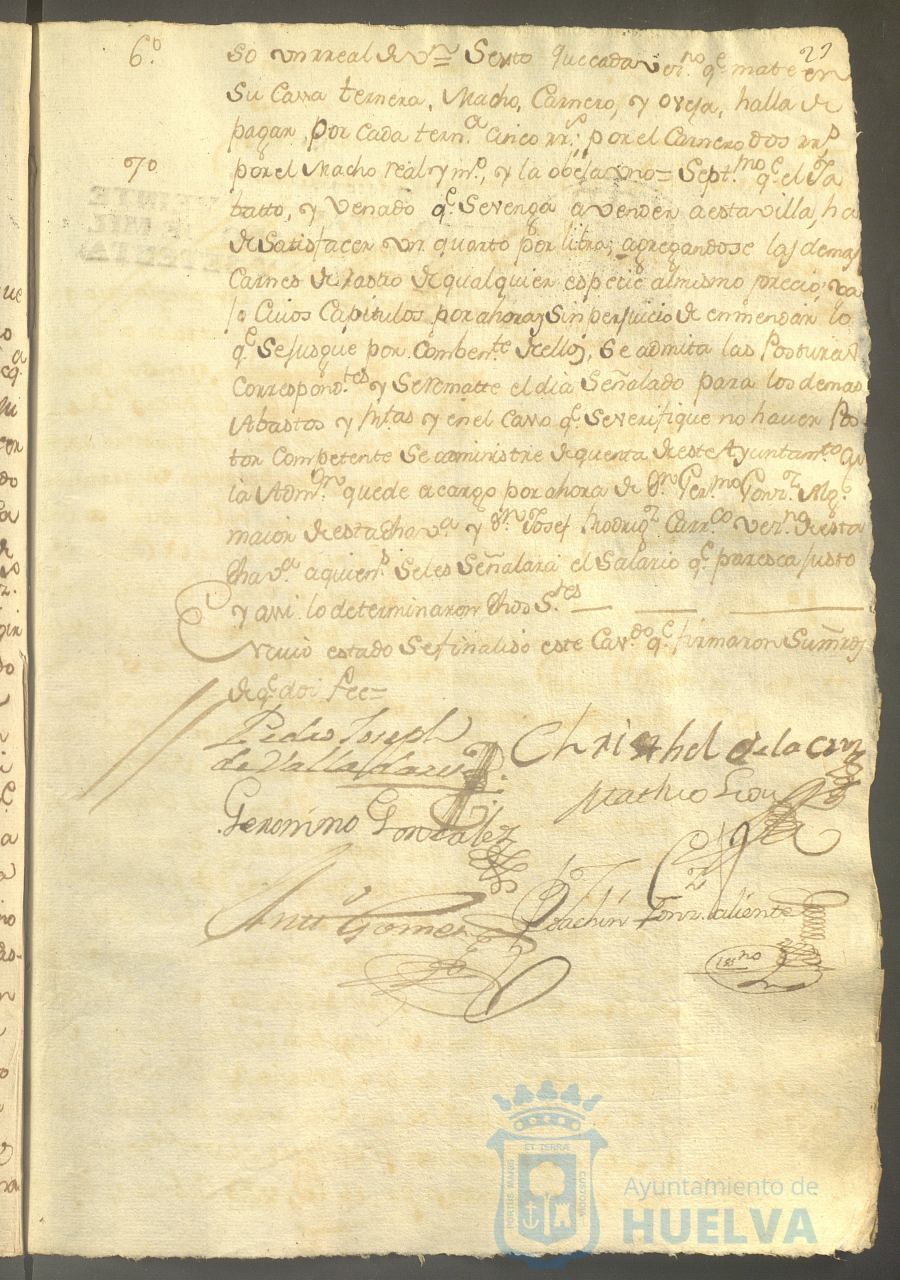 27
6.º so un real de v.n = Sexto que cada vez.no q.e mate en
su Cassa ternera, Macho, Carnero, y oveja, halla de
pagar por cada tern.a cinco rr.s, por el Carnero dos rr.s
7.º por el Macho real y m.o, y la obeja uno = Sept.mo q.e el Ja
batto, y Venado q.e se venga a vender a esta villa, ha
de Satisfacer un quarto por libra; agregandose las demas
Carnes de rastro de qualquier especie al mismo precio; va
jo Cuios Capitulos por ahora, y Sin perjuicio de enmendar lo
q.e Se jusgue por Comben.te de ellos, Se admita las Posturas
Correspond.tes y Se rematte el dia Señalado para los demas
Abastos y Rntas y en el Casso q.e Se verifique no haver Pos-
tor Competente Se administre de quenta de este Ayuntam.to cu
ia Adm.on quede a cargo por ahora de D.n Ger.mo Gonz.z Alg.l
maior de esta dha v.a y D.n Josef Rodrig.z Carr.co vez.no de esta
dha v.a a quien.s Se les Señalara el Salario q.e paresca justo
y assi lo determinaron dhos S.res
En cuio estado Se finaliso este Cav.do q.e firmaron Su mrds
de q.e doi fee =
Pedro Joseph
de Valladares
Christhel de la Cruz
Mathio Leon
Geronimo Gonzalez
Ant.o Gomez
Joachin Gonz. Valiente
ess.no
ET TERRA
PORTUS MARIS
CUSTODIA
Ayuntamiento de
HUELVA